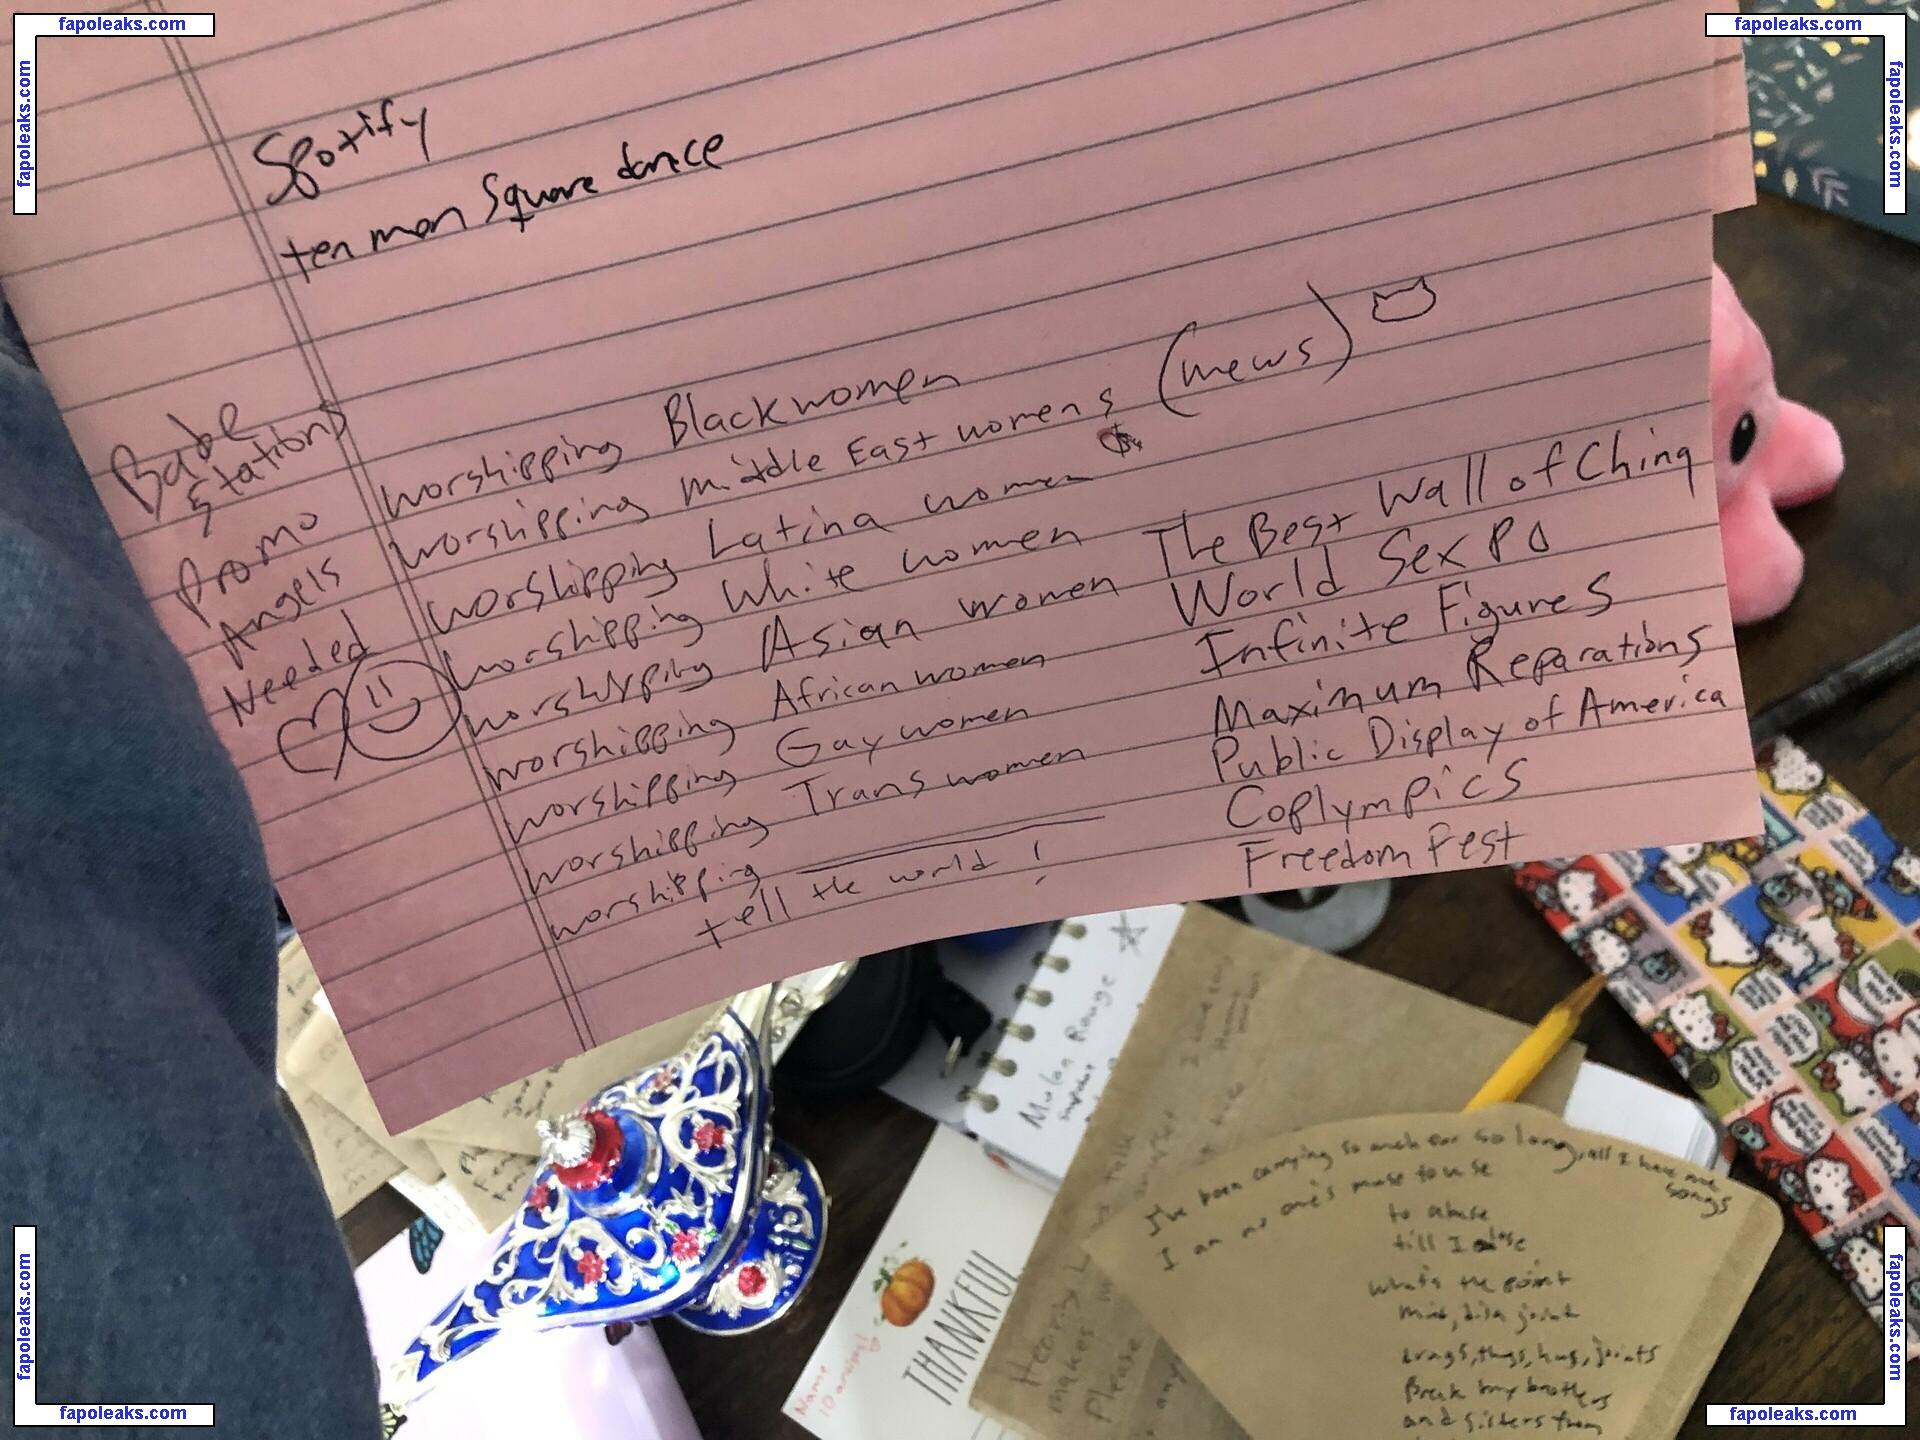 fapoleaks.com
fapoleaks.com
fapoleaks.com
fapoleaks.com
Spotify
ten man square dance
Babe
Stations
Promo
Angels
Needed
worshipping Black women
worshipping Middle East womens (mews)
worshipping Latina women
worshipping White women
worshipping Asian women
worshipping African women
worshipping Gay women
worshipping Trans women
worshipping
tell the world!
The Best Wall of China
World Sex Po
Infinite Figures
Maximum Reparations
Public Display of America
Coplympics
Freedom Fest
Mulan Rouge
I love
talk
Hearity
makes
Please
any
THANKFUL
Name
10 animals
I've been carrying so much for so long, all I have are songs
I am no one's muse to use
to abuse
till I
what's the point
drugs, thugs, hugs, joints
Break my brothers
and sisters from
fapoleaks.com
fapoleaks.com
fapoleaks.com
fapoleaks.com